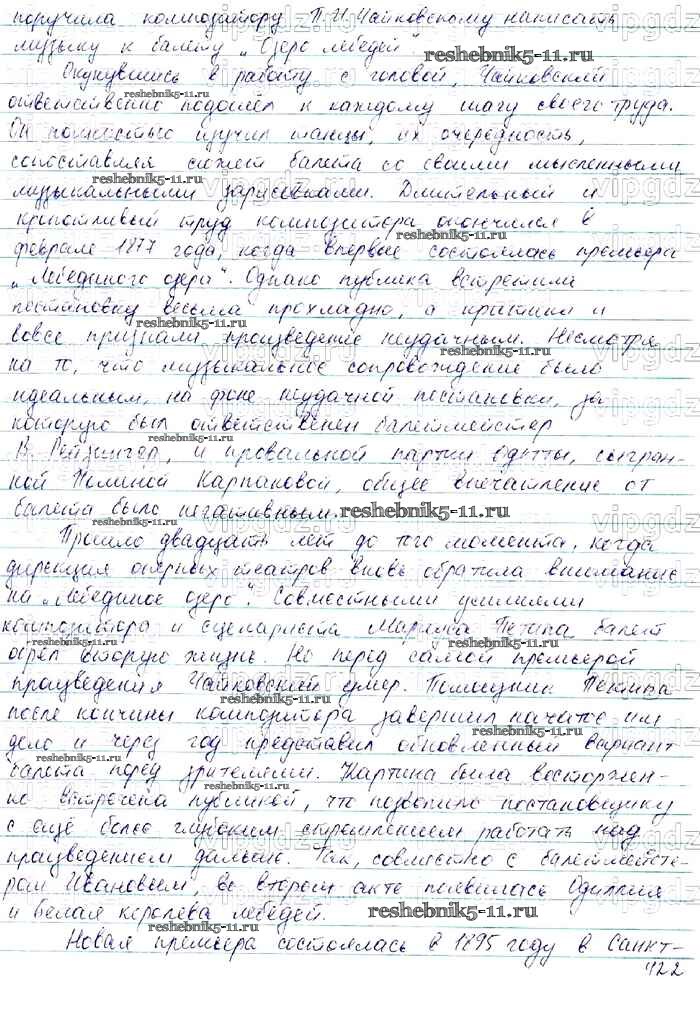 поручила композитору П.И. Чайковскому написать
музыку к балету „Озеро лебедей".
Окунувшись в работу с головой, Чайковский
ответственно подошёл к каждому шагу своего труда.
Он полностью изучил танцы, их очередность,
сопоставляя сюжет балета со своими мысленными
музыкальными зарисовками. Длительный и
кропотливый труд композитора окончился в
феврале 1877 года, когда впервые состоялась премьера
„Лебединого озера". Однако публика встретила
постановку весьма прохладно, а критики и
вовсе признали произведение неудачным. Несмотря
на то, что музыкальное сопровождение было
идеальным, на фоне неудачной постановки, за
которую был ответственен балетмейстер
В. Рейзингер, и провальной партии Одетты, сыгран-
ной Полиной Карпаковой, общее впечатление от
балета было негативным.
Прошло двадцать лет до того момента, когда
дирекция оперных театров вновь обратила внимание
на „Лебединое озеро". Совместными усилиями
композитора и сценариста Мариуса Петипа балет
обрёл вторую жизнь. Но перед самой премьерой
произведения Чайковский умер. Помощник Петипа
после кончины композитора завершил начатое им
дело и через год представил обновлённый вариант
балета перед зрителями. Картина была восторжен-
но встречена публикой, что позволило постановщику
с ещё более глубоким стремлением работать над
произведением дальше. Так, совместно с балетмейсте-
ром Ивановым, во втором акте появилась Одиллия
и Белая королева лебедей.
Новая премьера состоялась в 1895 году в Санкт-
422
reshebnik5-11.ru
vipgdz.ru